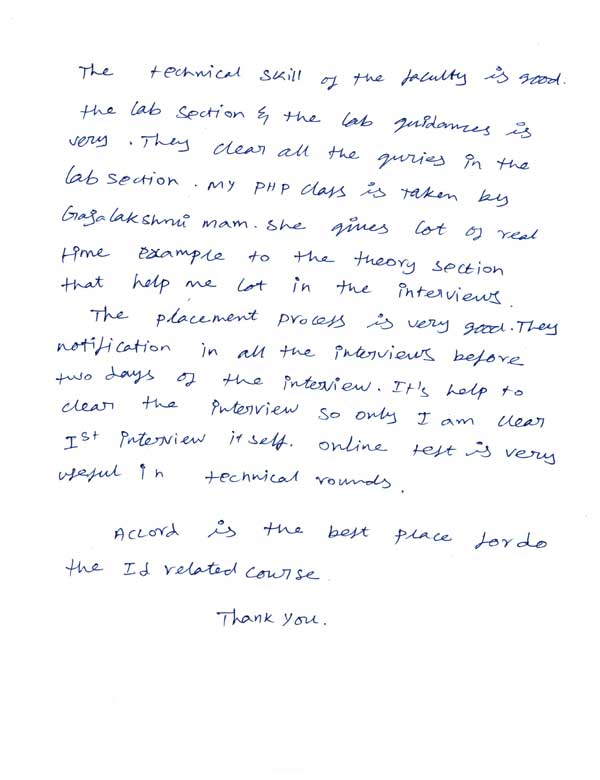 The technical skill of the faculty is good.
the lab section & the lab guidances is
very . They clear all the quries in the
lab section . My PHP class is taken by
Gajalakshmi mam. She gives lot of real
time example to the theory section
that help me lot in the interviews.
The placement process is very good. They
notification in all the interviews before
two days of the interview. It's help to
clear the interview so only I am clear
Ist interview itself. online test is very
useful in technical rounds.
Accord is the best place for do
the It related course.
Thank you.